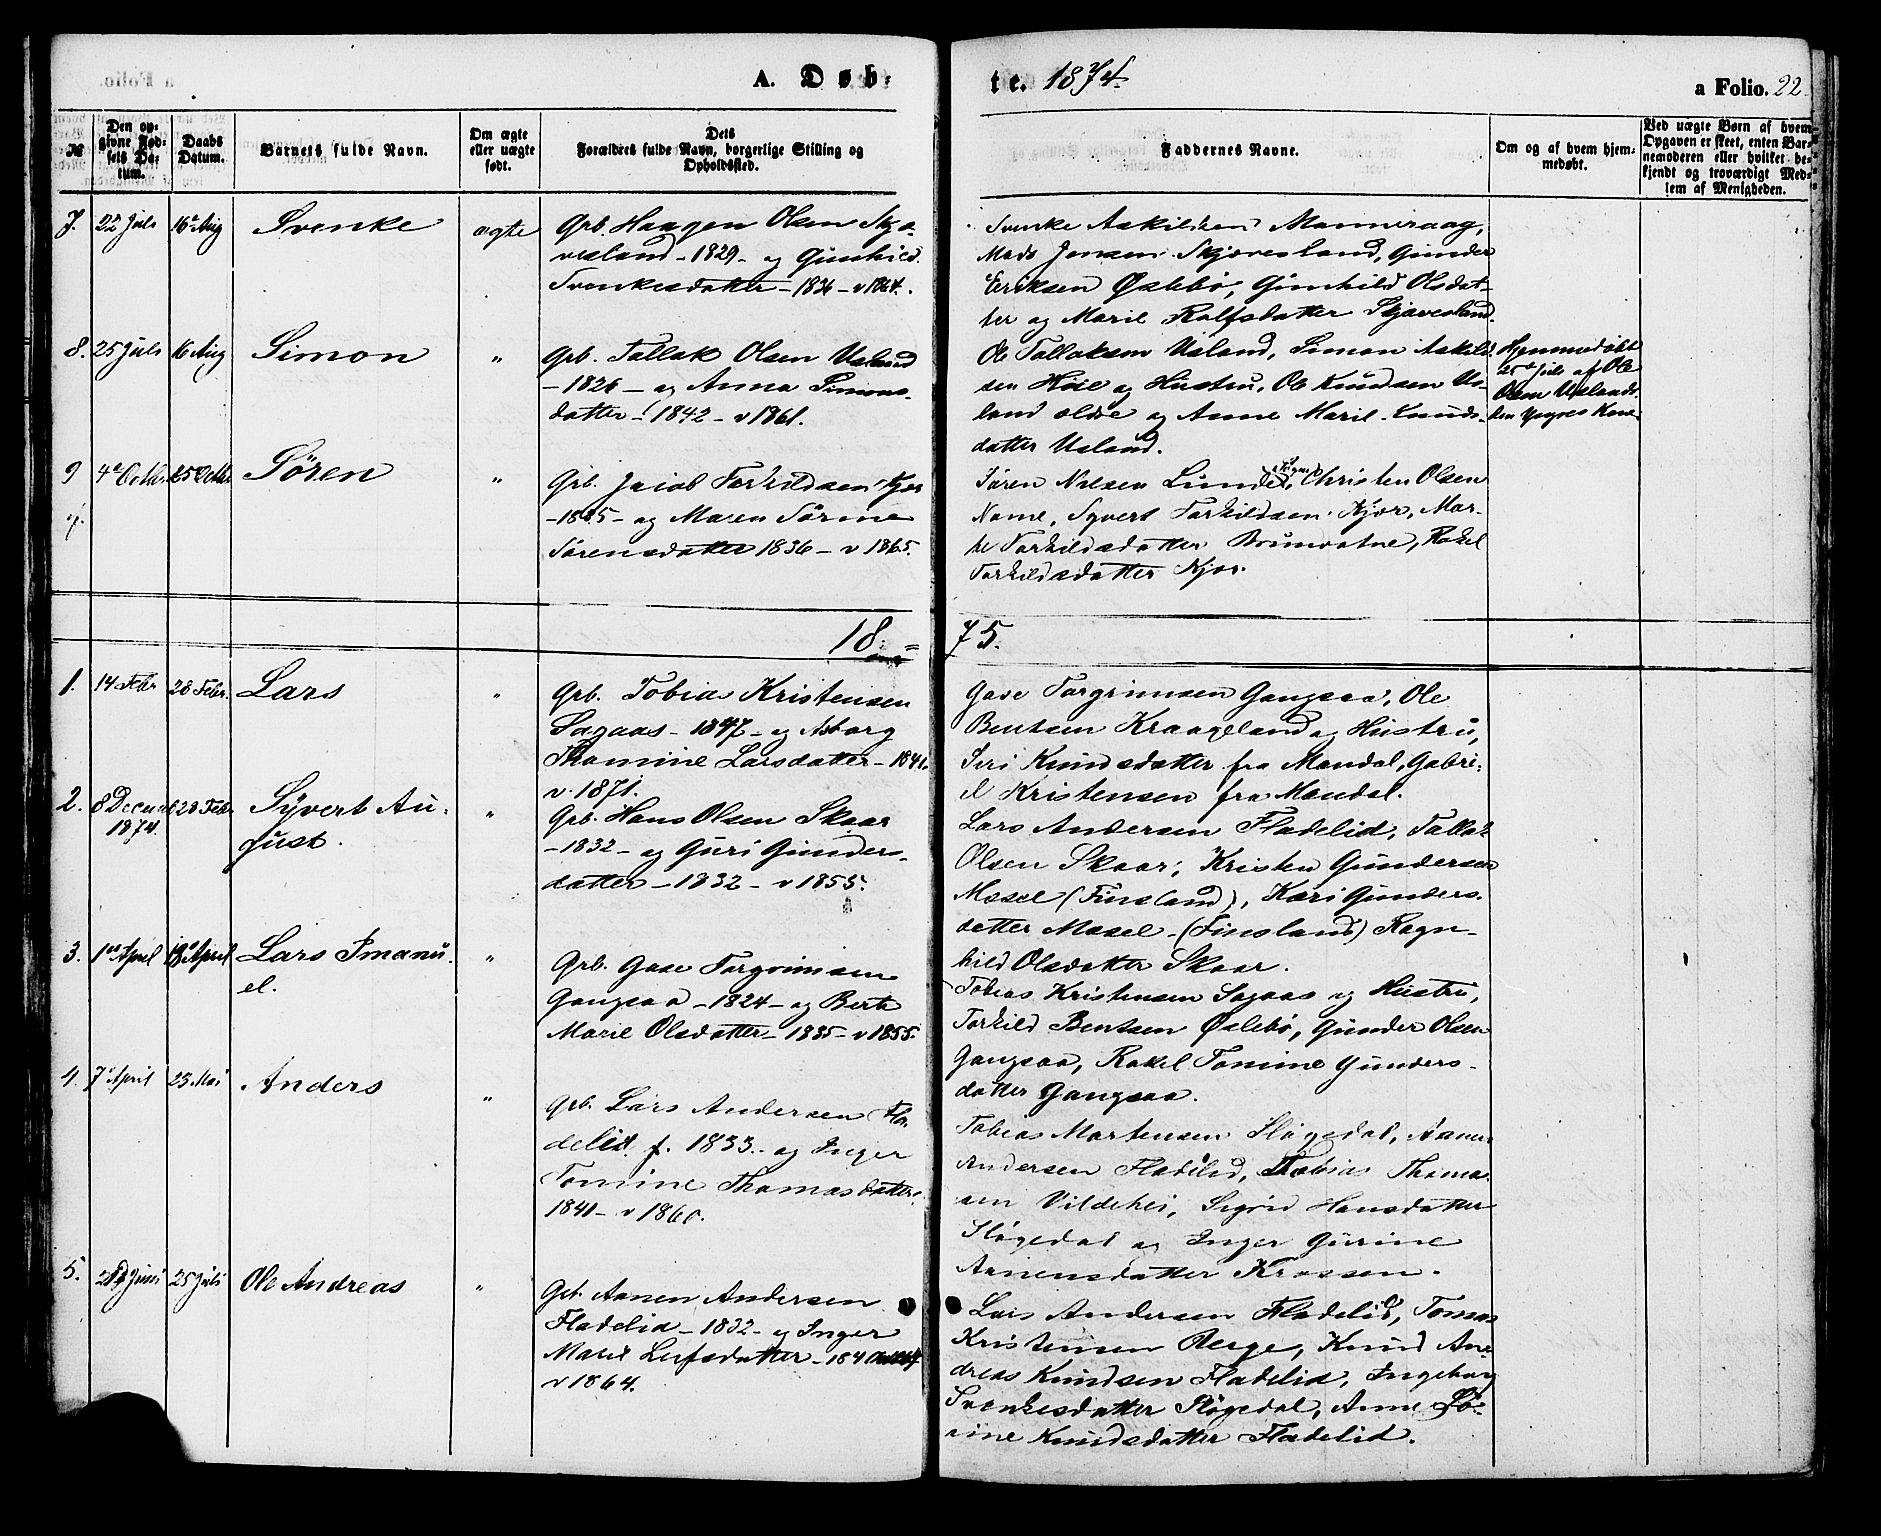 A. Døb-
te. 1874.
a Folio. 22.
№
Den op-
givne Fød-
sels Da-
tum.
Daabs
Datum.
Barnets fulde Navn.
Om ægte
eller uægte
født.
Dets
Forældres fulde Navn, borgerlige Stilling og
Opholdssted.
Faddernes Navne.
Om og af hvem hjem-
medøbt.
Ved uægte Børn af hvem
Opgaven er skeet, enten Bar-
nemoderen eller hvilket be-
kjendt og troværdigt Med-
lem af Menigheden.
7. 22 Juli 16 Aug Svenke ægte
Grb. Haagen Olsen Skjæ-
vesland - 1829 - og Gunhild
Svenkesdatter - 1836 - v 1864.
Svenke Askildsen Manneraag,
Mads Jensen Skjævesland, Gunder
Eriksen Øslebø, Gunhild Olsdat-
ter og Marie Rolfsdatter Skjævesland.
8. 25 Juli 16 Aug Simon "
Grb. Tallak Olsen Usland
- 1826 - og Anna Simons-
datter - 1842 - v 1861.
Ole Tallaksen Usland, Simon Askild-
sen Høie og Hustru, Ole Knudsen Us-
land ældre og Anne Marie Knuds-
datter Usland.
Hjemmedøbt
25 Juli af Ole
Olsen Uslands
den yngres Kone
9 4 Octbr 25 Octbr Sören "
Grb. Jacob Torkildsen Kjær
- 1835 - og Maren Sörine
Sörensdatter 1836 - v 1865.
Sören Nilsen Lunde, Christen Olsen
Nome, Syvert Torkildsen Kjær, Mar-
the Torkildsdatter Brunvatne, Rakel
Torkildsdatter Kjær.
18 =
75.
1. 14 Febr 28 Febr. Lars "
Grb. Tobias Kristensen
Sagaas - 1847 - og Asborg
Thomine Larsdatter - 1841.
v. 1871.
Gase Torgrimsen Gangsaa, Ole
Bentsen Kraageland og Hustru,
Siri Knudsdatter fra Mandal, Gabri-
el Kristensen fra Mandal.
2. 8 Decemb 28 Febr Syvert Au-
1874. gust.
"
Grb. Hans Olsen Skaar
- 1832 - og Guri Gunders-
datter - 1832 - v 1855.
Lars Andersen Fladelid, Tallak
Olsen Skaar, Kristen Gundersen
Mosel (Finsland), Kari Gunders-
datter Mosel - (Finsland) Ragn-
hild Olsdatter Skaar.
3. 1 April 18 April Lars Imanu-
el.
"
Grb. Gase Torgrimsen
Gangsaa - 1824 - og Berte
Marie Olsdatter - 1835 - v 1855.
Tobias Kristensen Sagaas og Hustru,
Torkild Bentsen Øslebø, Gunder Olsen
Gangsaa, Rakel Tomine Gunders-
datter Gangsaa.
4. 7 April 23 Mai Anders "
Grb. Lars Andersen Fla-
delid f. 1833. og Inger
Tomine Thomasdatter
1841 - v 1860.
Tobias Martensen Sløgedal, Aanen
Andersen Fladelid, Tobias Thomas-
sen Vildehei, Sigrid Hansdatter
Sløgedal og Inger Gurine
Aanensdatter Krossen.
5. Juni 25 Juli Ole Andreas "
Grb. Aanen Andersen
Fladelid - 1832 - og Inger
Marie Leifsdatter - 184
v 1864.
Lars Andersen Fladelid, Tomas
Kristensen Berge, Knud An-
dreas Knudsen Fladelid, Ingeborg
Svenkesdatter Sløgedal, Anne Sö-
rine Knudsdatter Fladelid.